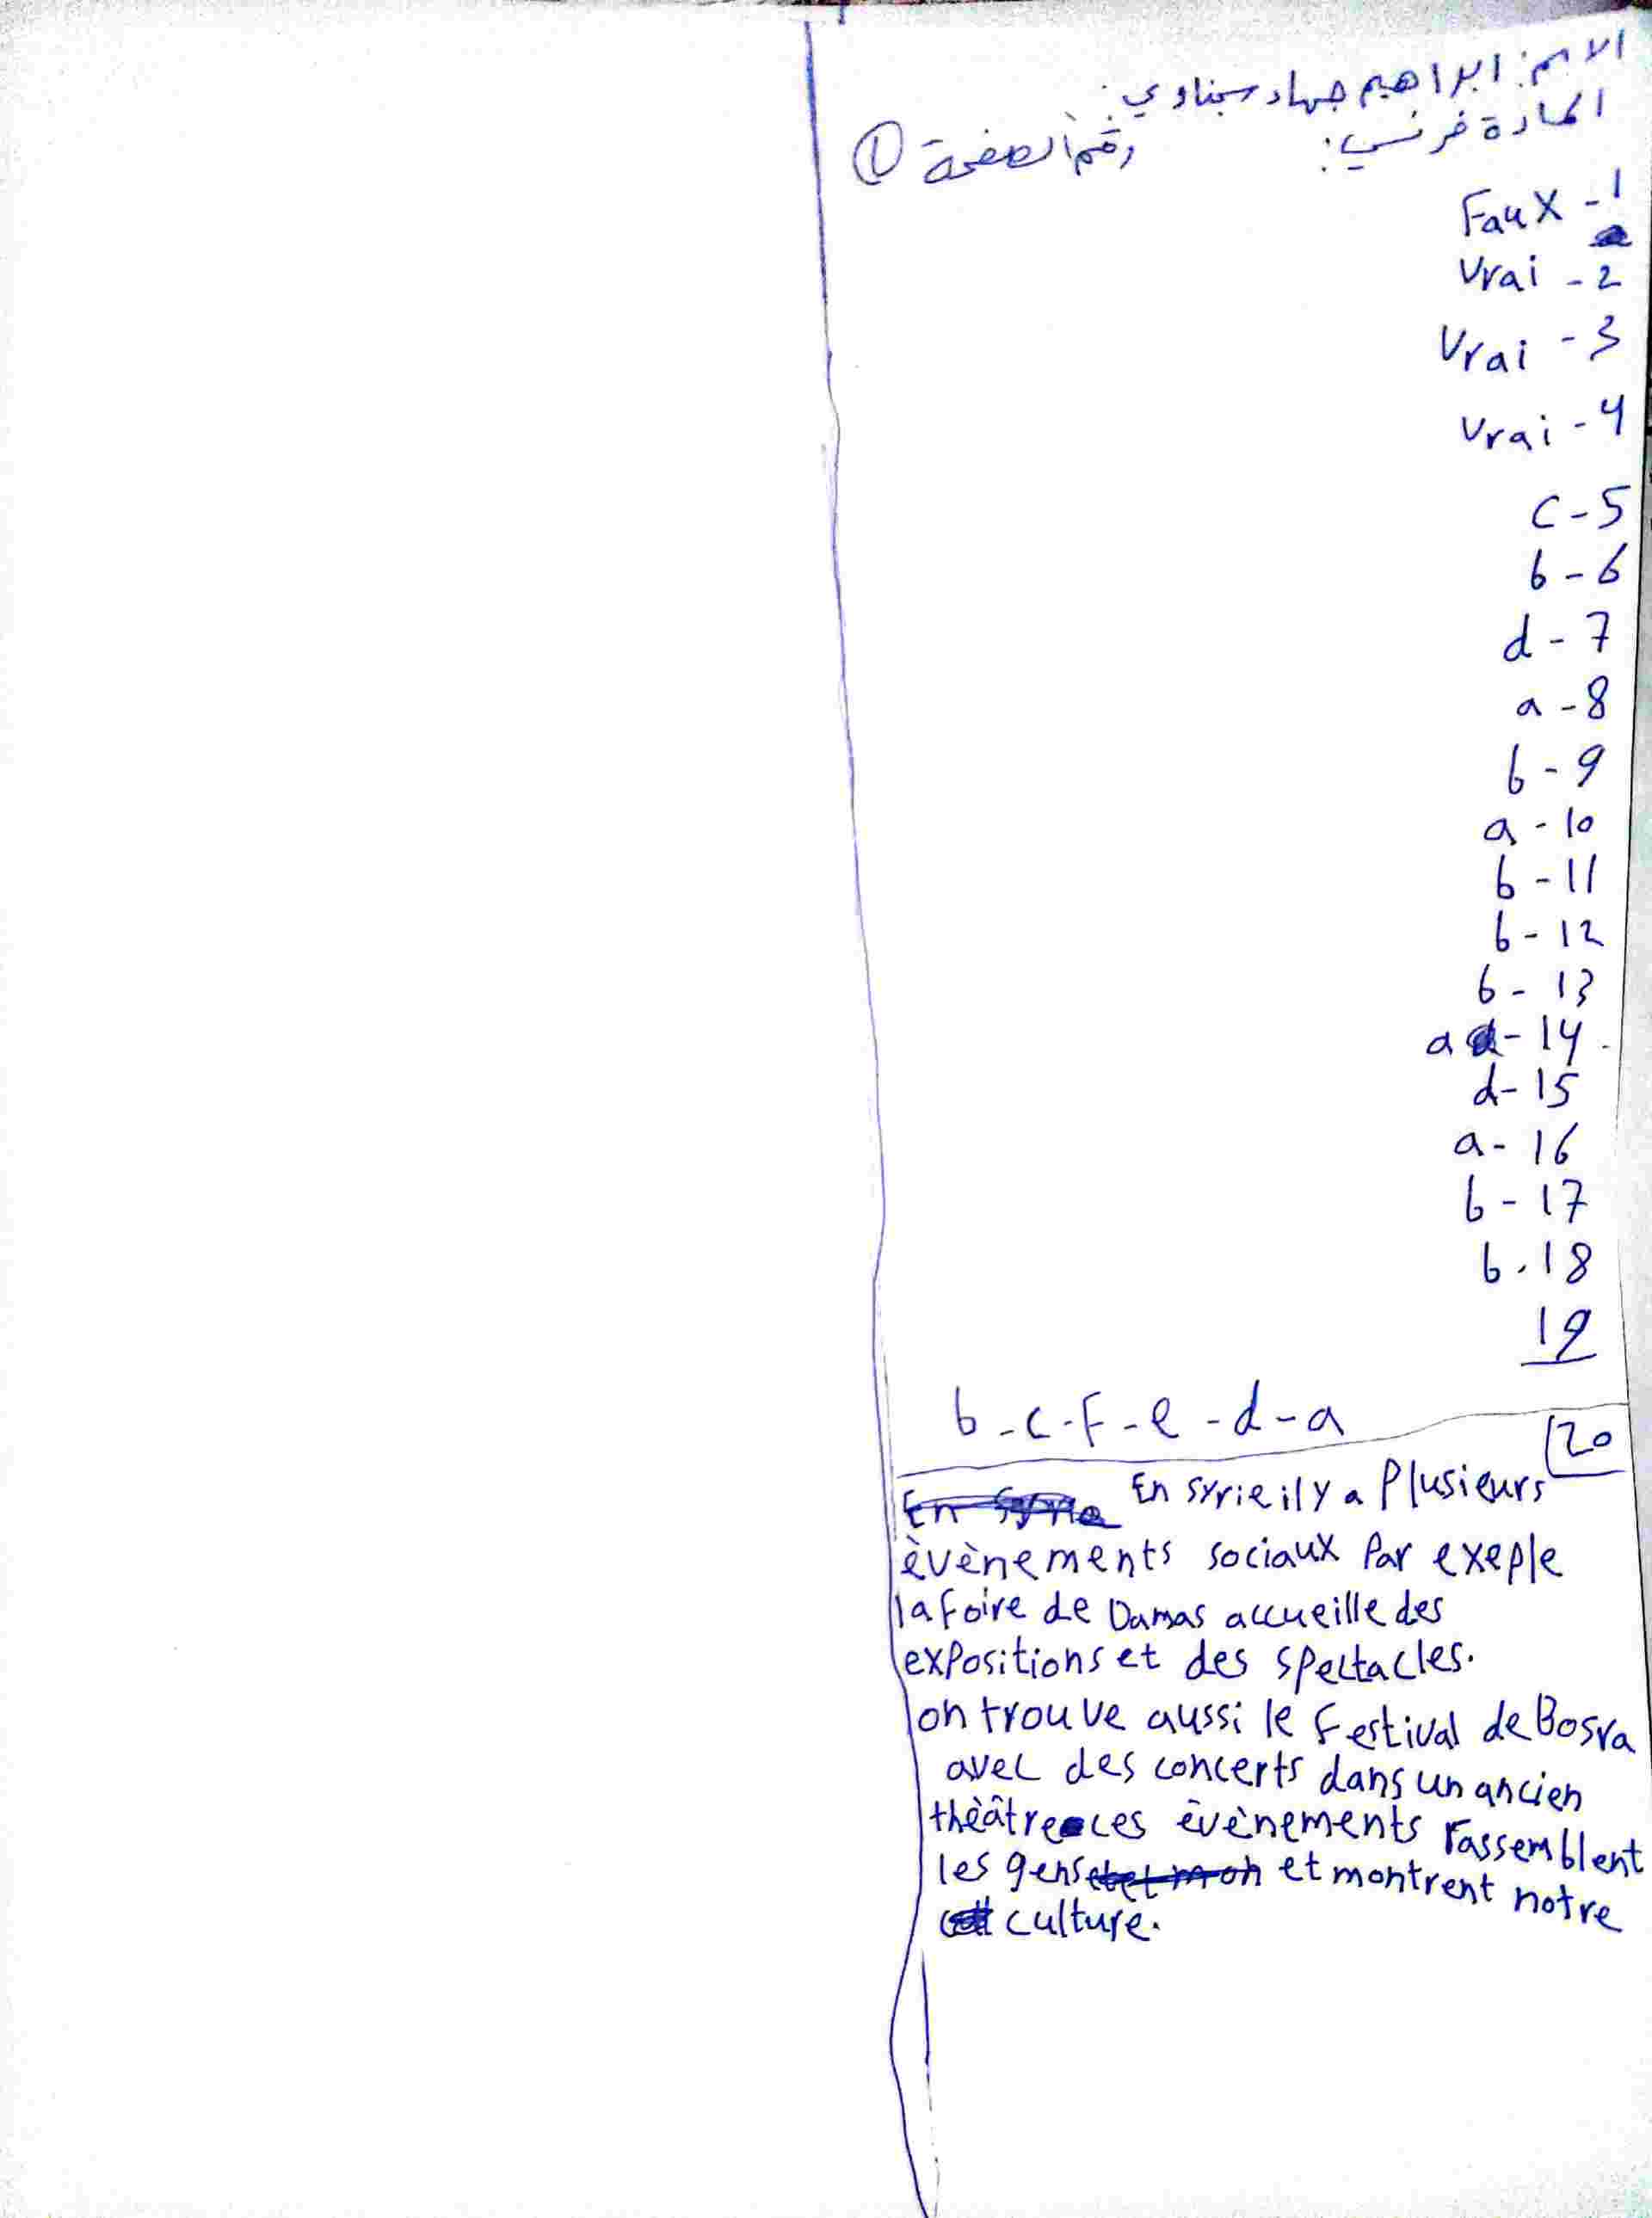 الاسم: ابراهيم جهاد سجناوي
المادة فرنسي: رقم الصفحة 1
Faux - 1
Vrai - 2
Vrai - 3
Vrai - 4
c - 5
b - 6
d - 7
a - 8
b - 9
a - 10
b - 11
b - 12
b - 13
a - 14
d - 15
a - 16
b - 17
b - 18
19
b - c - F - e - d - a
20
En syrie il y a Plusieurs
èvènements sociaux Par exeple
la foire de Damas accueille des
expositions et des spectacles.
on trouve aussi le Festival de Bosra
avec des concerts dans un ancien
thèâtre ces èvènements rassemblent
les gens et montrent notre
culture.